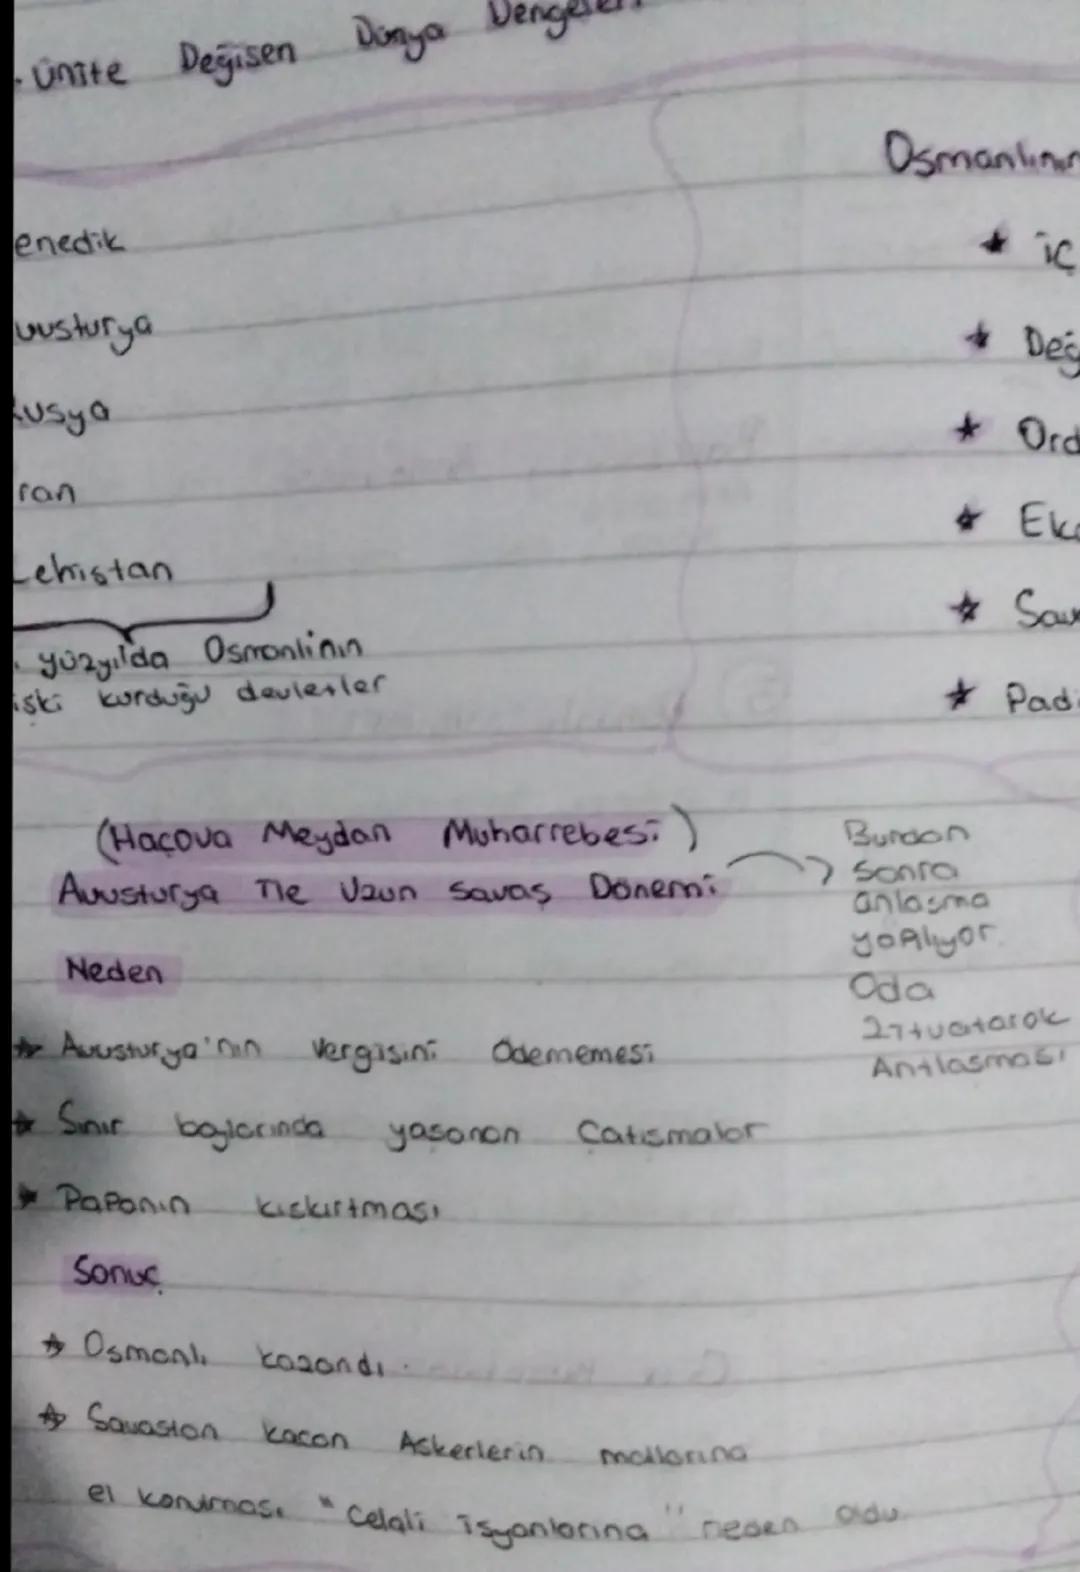 . ünite Değisen Dünya Dengeleri
enedik
vusturya
Rusya
ran
Lehistan
. yüzyılda Osmanlinın
işki kurduğu devletler
Osmanlının
★ iç
★ Değ
★ Ord
★ Eko
★ Sav
★ Padi
(Haçova Meydan Muharrebesi)
Avusturya ile Uzun Savaş Dönemi
Burdan
sonra
anlasma
yapılıyor.
Oda
Zitvatarok
Antlasması
Neden
★ Avusturya'nın vergisini Ödememesi
★ Sınır boylarında yasanan Çatısmalar
★ Papanın kıskırtması
Sonuç
★ Osmanlı kazandı.
★ Savastan kacan Askerlerin mallarına
el konulması "Celali isyanlarına" neden oldu.